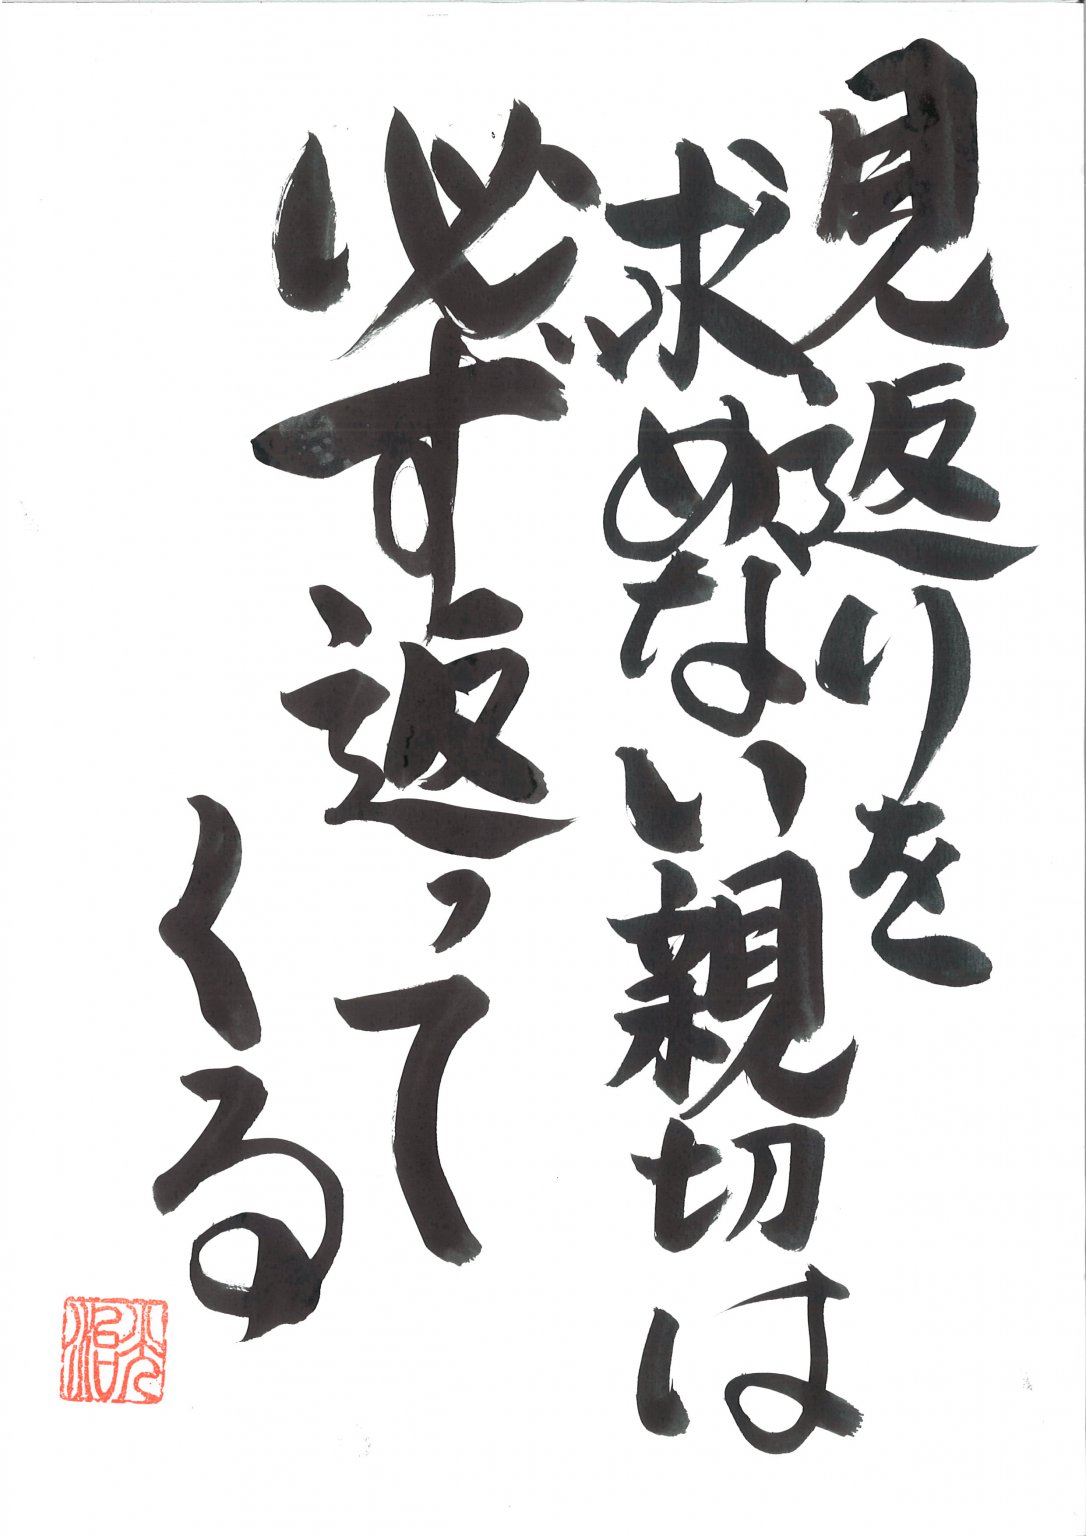 見返りを
求めない親切は
必ず返って
くる